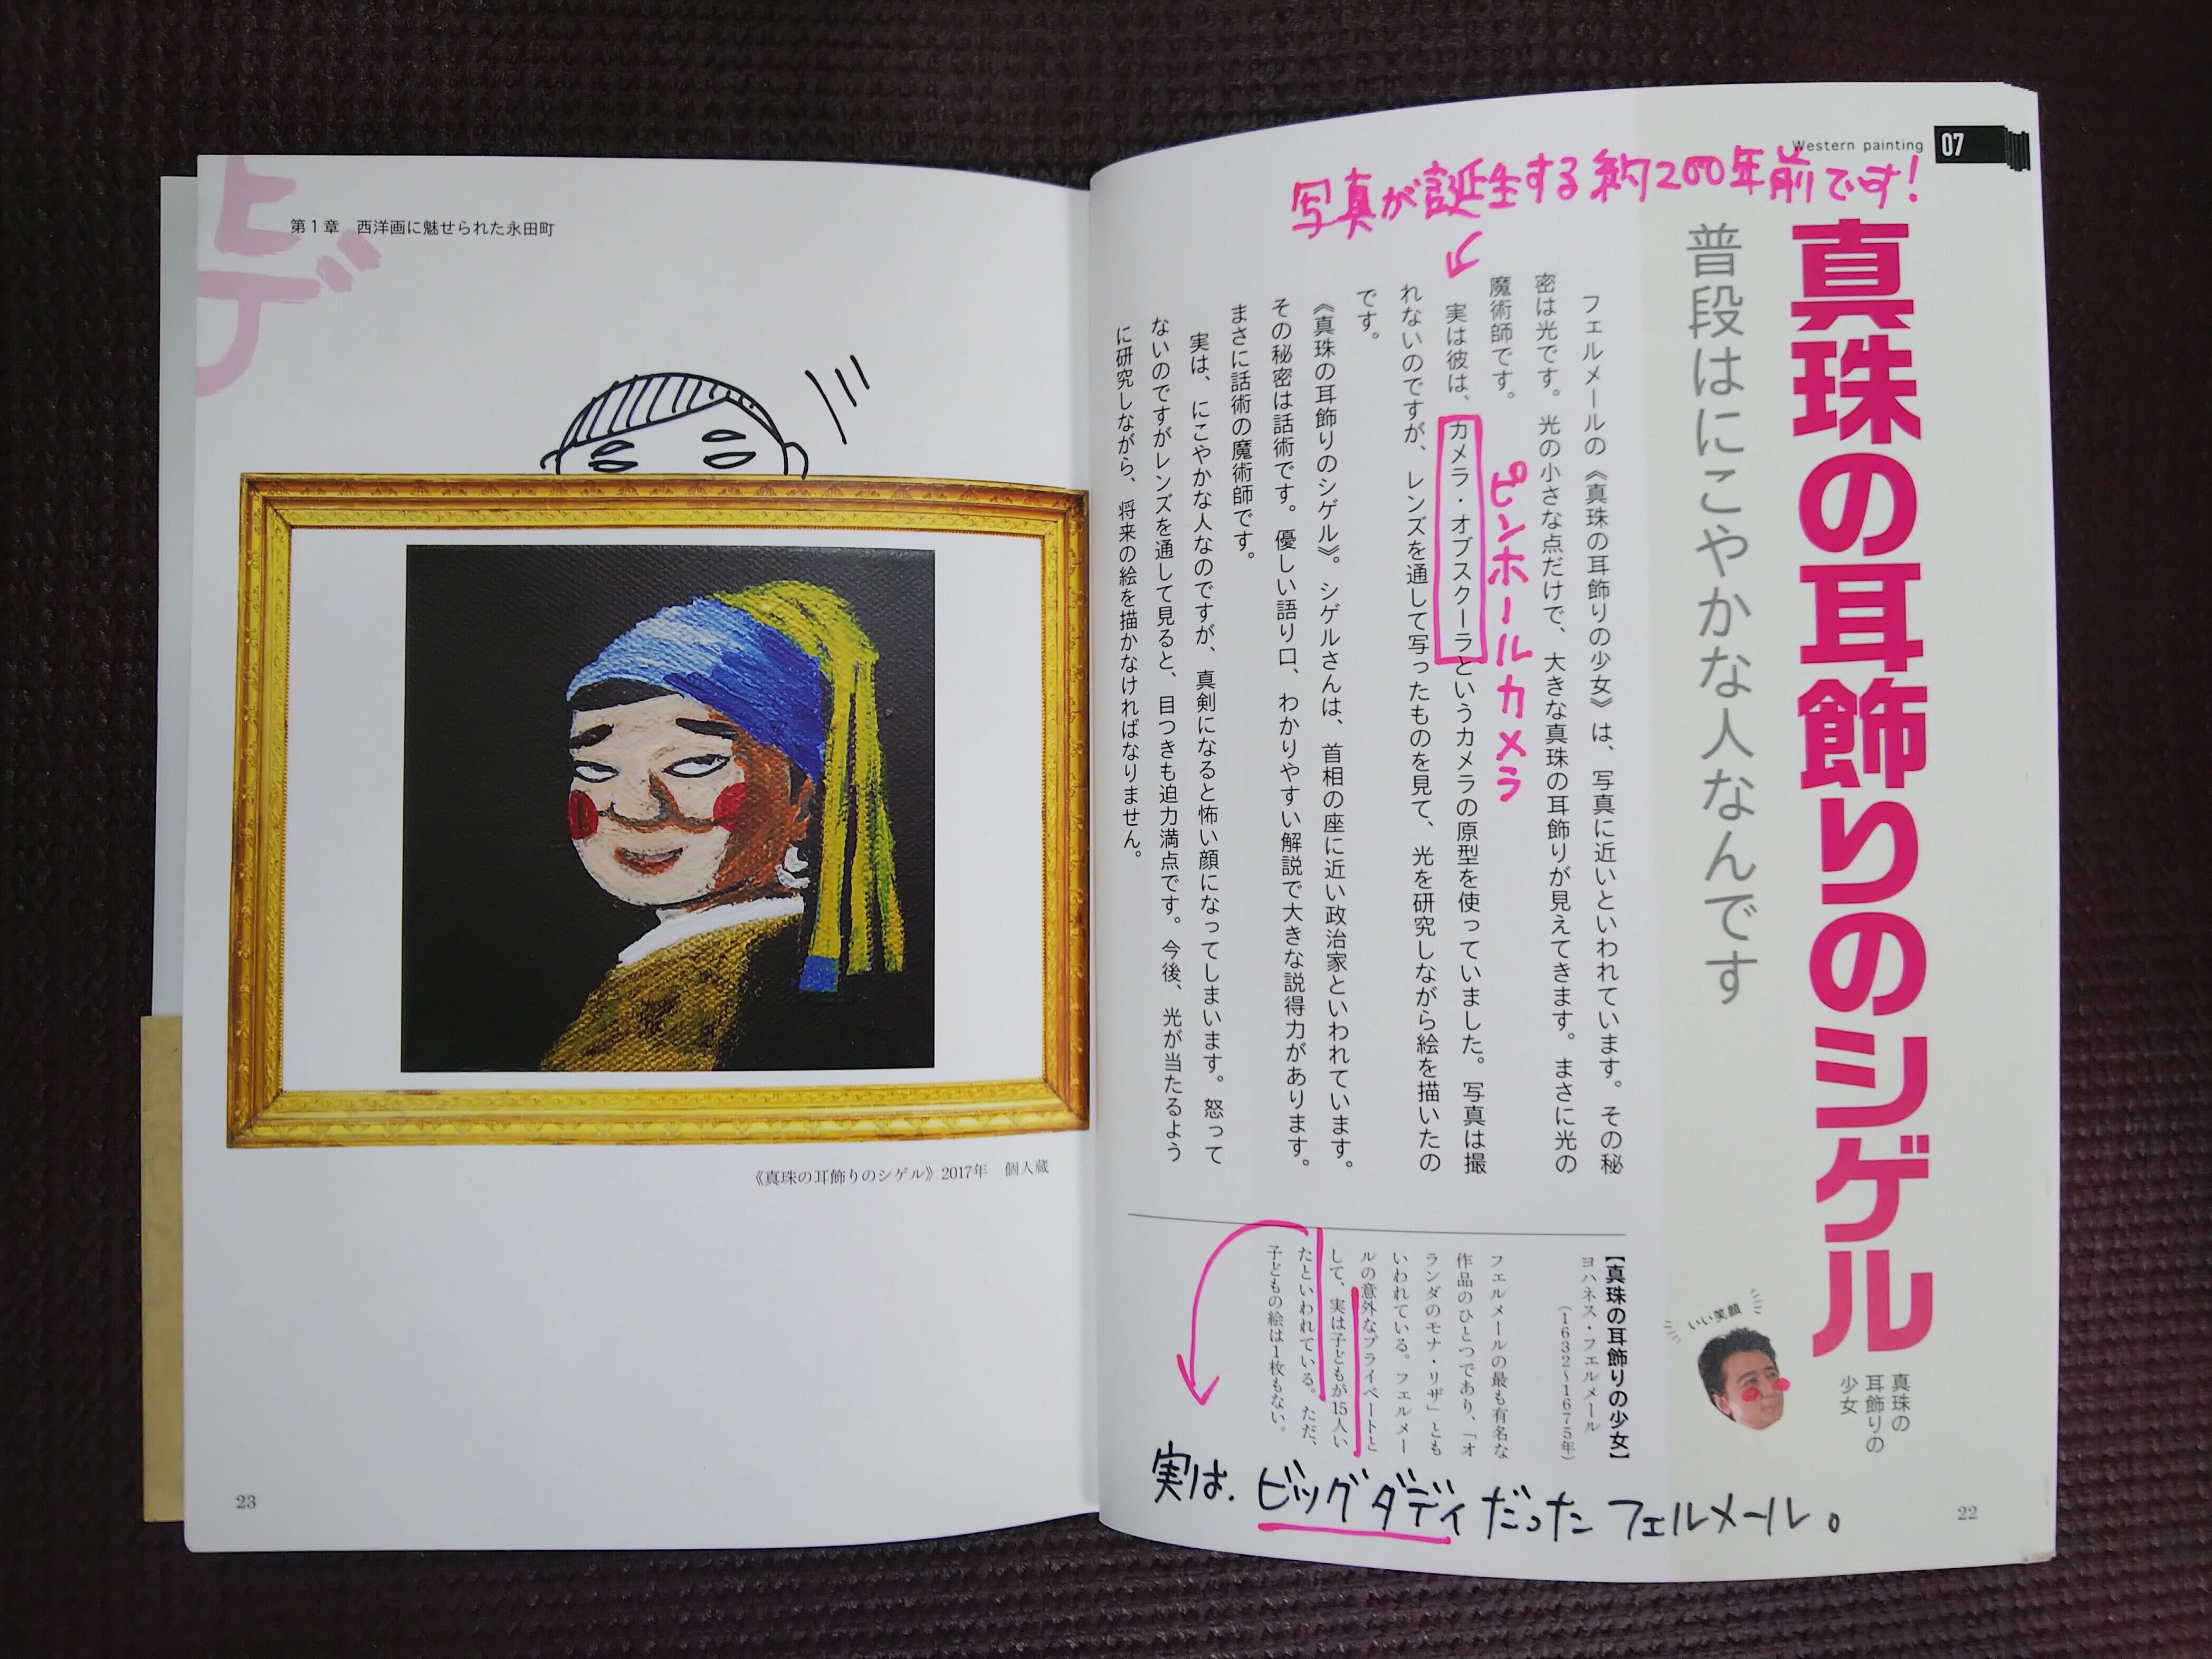 Western painting
07
写真が誕生する約200年前です!
真珠の耳飾りのシゲル
真珠の
耳飾りの
少女
普段はにこやかな人なんです
いい笑顔
フェルメールの《真珠の耳飾りの少女》は、写真に近いといわれています。その秘
密は光です。光の小さな点だけで、大きな真珠の耳飾りが見えてきます。まさに光の
魔術師です。
ピンホールカメラ
実は彼は、カメラ・オブスクーラというカメラの原型を使っていました。写真は撮
れないのですが、レンズを通して写ったものを見て、光を研究しながら絵を描いたの
です。
《真珠の耳飾りのシゲル》。シゲルさんは、首相の座に近い政治家といわれています。
その秘密は話術です。優しい語り口、わかりやすい解説で大きな説得力があります。
まさに話術の魔術師です。
実は、にこやかな人なのですが、真剣になると怖い顔になってしまいます。怒って
ないのですがレンズを通して見ると、目つきも迫力満点です。今後、光が当たるよう
に研究しながら、将来の絵を描かなければなりません。
【真珠の耳飾りの少女】
ヨハネス・フェルメール
(1632〜1675年)
フェルメールの最も有名な
作品のひとつであり、「オ
ランダのモナ・リザ」とも
いわれている。フェルメー
ルの意外なプライベートと
して、実は子どもが15人い
たといわれている。ただ、
子どもの絵は1枚もない。
実は、ビッグダディだったフェルメール。
22
ヒデ
第1章 西洋画に魅せられた永田町
《真珠の耳飾りのシゲル》2017年 個人蔵
23